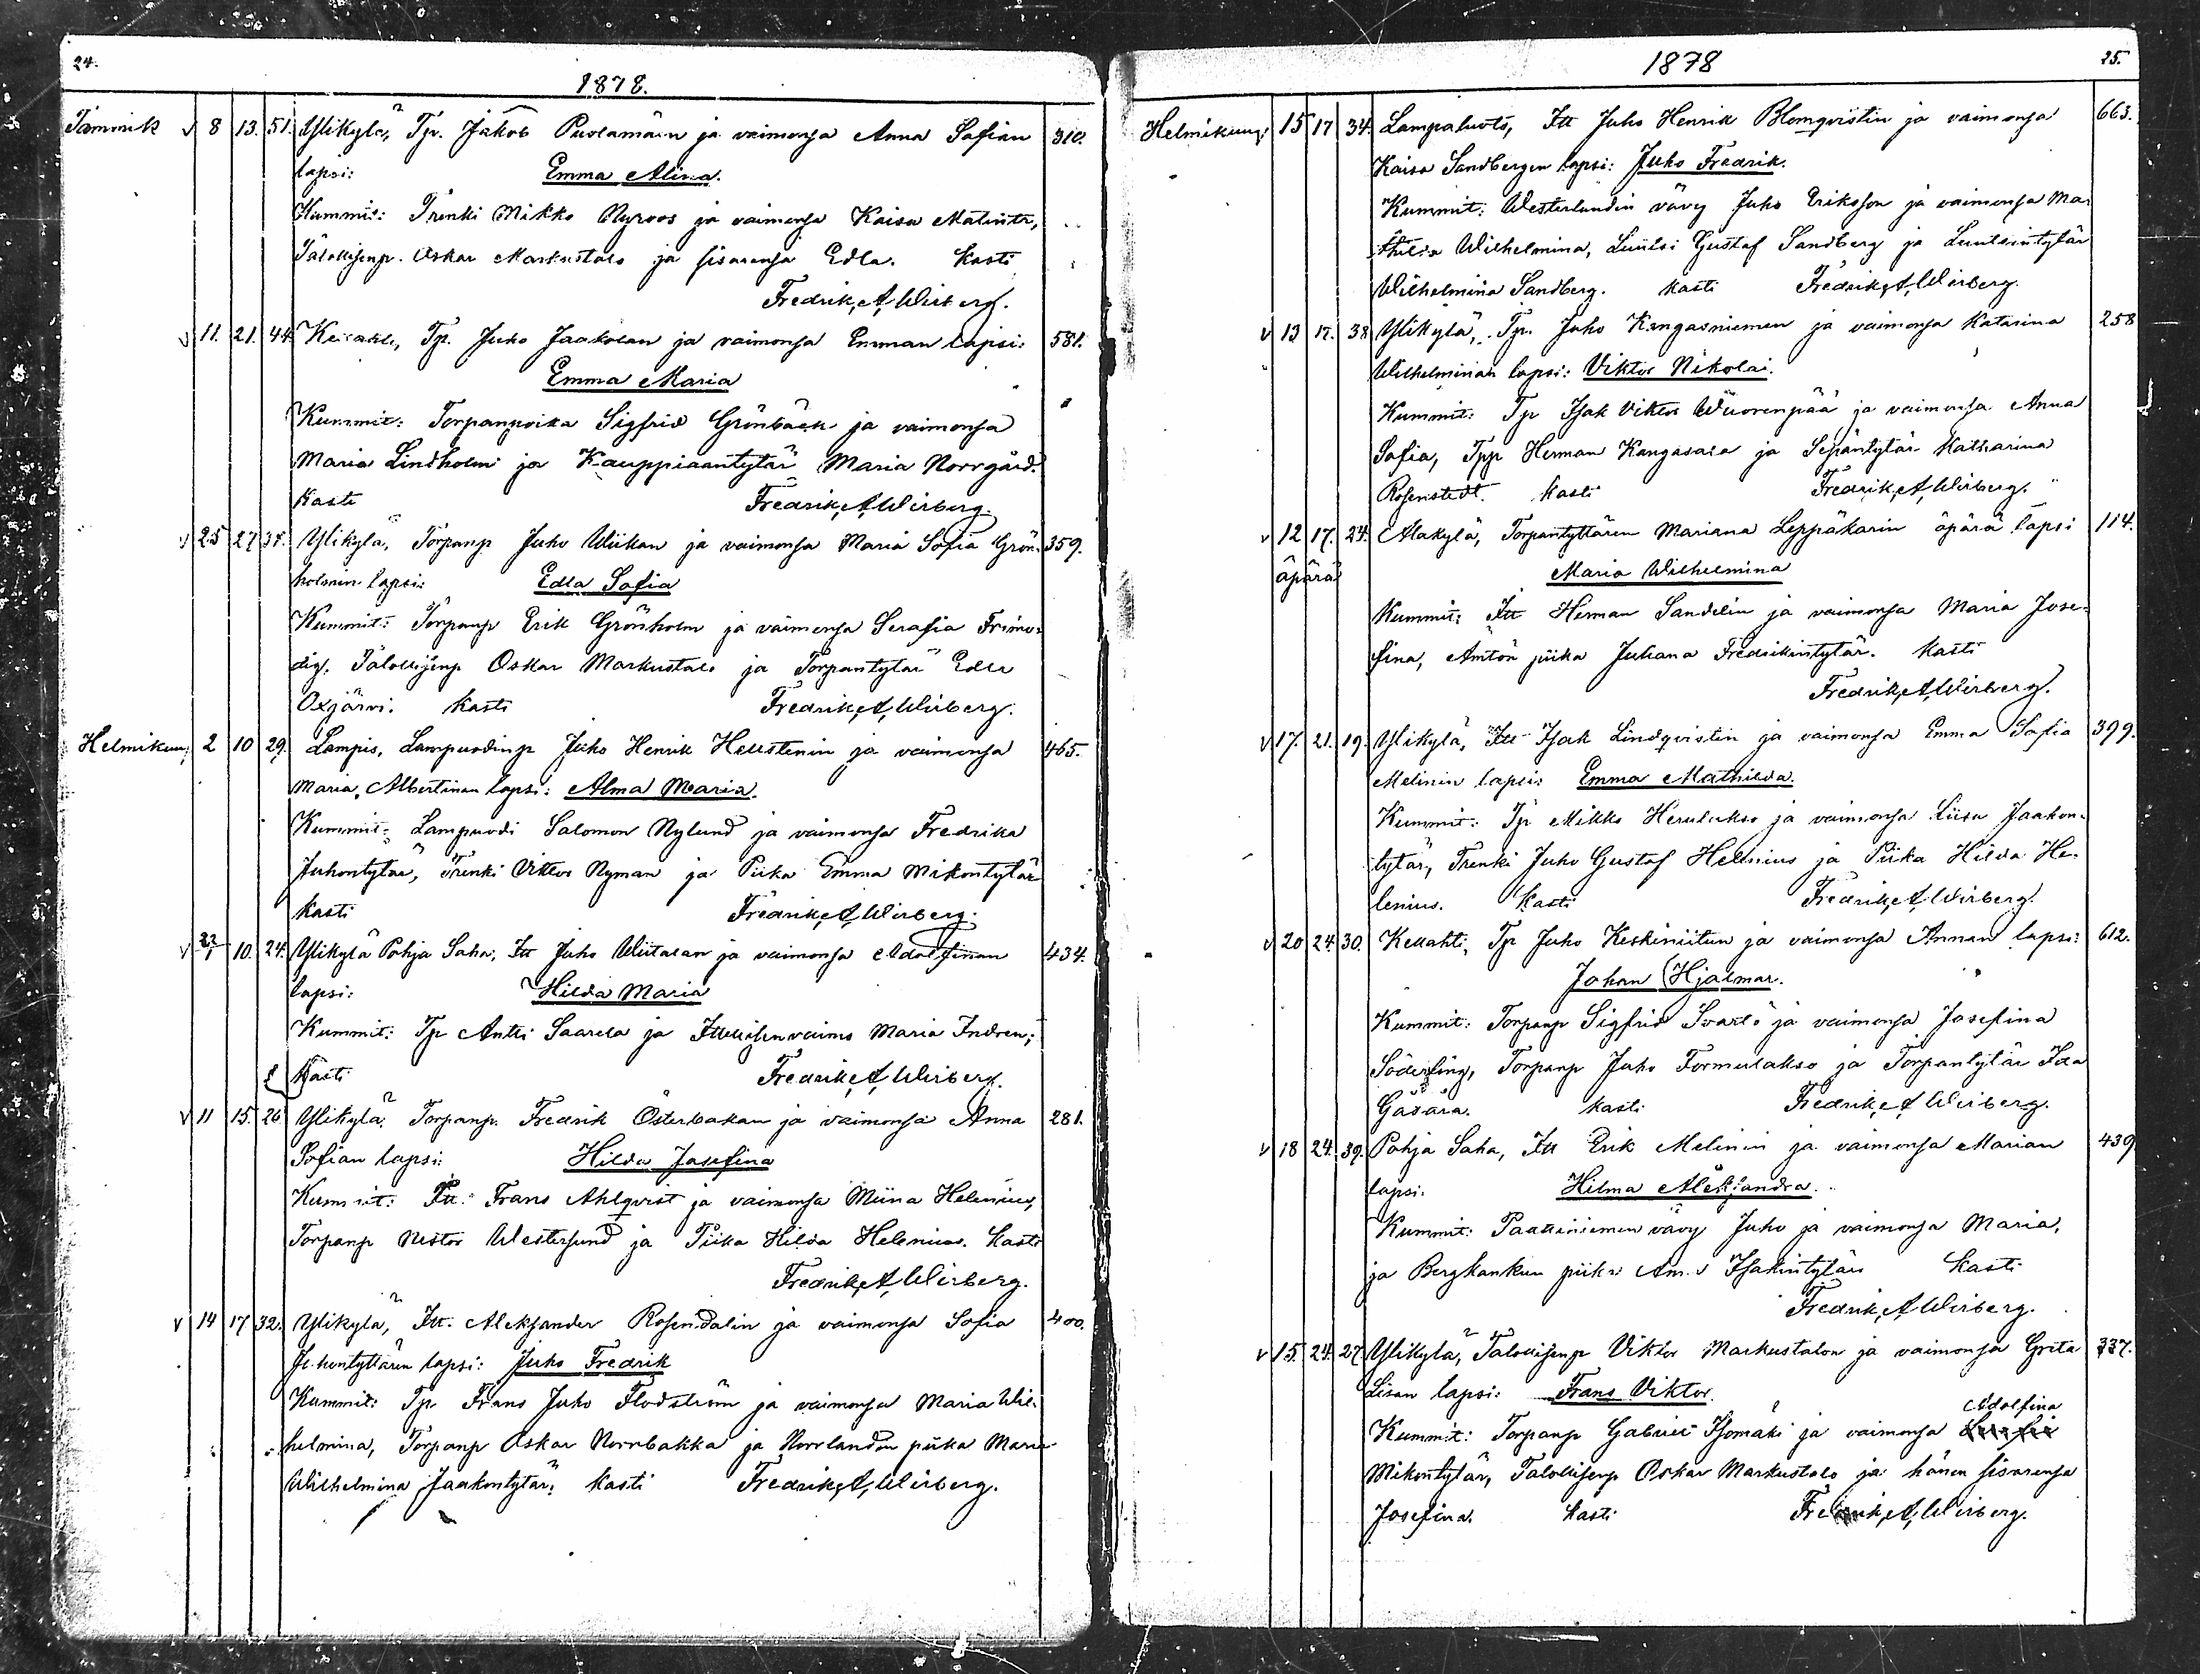 24.
1878.
Tammik v 8 13. 51. Ylikylä, Tp. Jakob Puolamäen ja vaimonsa Anna Sofian 310.
lapsi: Emma Alina.
Kummit: Trenki Mikko Nyroos ja vaimonsa Kaisa Matintr,
Talollisenp. Oskar Markustalo ja sisarensa Edla. Kasti
Fredrik, A, Wirberg.
v 11. 21. 44. Tp. Juho Jaakolan ja vaimonsa Emman lapsi: 581.
Emma Maria
Kummit: Torpanpoika Sigfrid Grönbäck ja vaimonsa
Maria Lindholm ja Kauppiaantytär Maria Norrgård.
Kasti Fredrik, A, Wirberg.
v 25 27 Ylikylä, Torpanp Juho Wiikan ja vaimonsa Maria Sofia Grön- 359.
holmin lapsi: Edla Sofia
Kummit: Torpanp Erik Grönholm ja vaimonsa Serafia Frimo-
dig, Talollisenp Oskar Markustalo ja Torpantytär Edla
Oxjärvi. Kasti Fredrik, A, Wirberg.
Helmikuu; 2 10 29. Lampis, Lampuodinp Juho Henrik Hellstenin ja vaimonsa 465.
Maria, Albertinan lapsi: Alma Maria.
Kummit: Lampuodi Salomon Nylund ja vaimonsa Fredrika
Juhontytär, Trenki Viktor Nyman ja Piika Emma Mikontytär
Kasti Fredrik, A, Wirberg.
v 22/1 10. 24. Ylikylä Pohja Saha, Itt Juho Wiitalan ja vaimonsa Adolfinan 434.
lapsi: Hilda Maria
Kummit: Tp Antti Saarela ja Itsellisenvaimo Maria Indren;
Kasti Fredrik, A, Wirberg.
v 11 15. 26 Ylikylä, Torpanp. Fredrik Österbakan ja vaimonsa Anna 281.
Sofian lapsi: Hilda Josefina
Kummit: Itt. Frans Ahlqvist ja vaimonsa Miina Helenius,
Torpanp Nestor Westersund ja Piika Hilda Helenius. Kasti
Fredrik, A, Wirberg.
v 14 17 32. Ylikylä, Itt. Aleksander Rosendalin ja vaimonsa Sofia 400.
Juhontyttären lapsi: Juho Fredrik
Kummit: Tp Frans Juho Flodström ja vaimonsa Maria Wil-
helmina, Torpanp Oskar Norrbakka ja Norrlandin piika Maria
Wilhelmina Jaakontytär; Kasti Fredrik, A, Wirberg.
1878
25.
Helmikuu; 15 17 34. Lampaluoto, Itt Juho Henrik Blomqvistin ja vaimonsa 663.
Kaisa Sandbergin lapsi: Juho Fredrik.
Kummit: Westerlundin vävy Juho Eriksson ja vaimonsa Ma-
thilda Wilhelmina, Luutsi Gustaf Sandberg ja Luutsintytär
Wilhelmina Sandberg. Kasti Fredrik, A, Wirberg.
v 13 17. 38 Ylikylä, Tp. Juho Kangasniemen ja vaimonsa Katarina 258
Wilhelminan lapsi: Viktor Nikolai.
Kummit: Tp Isak Viktor Wuorenpää ja vaimonsa Anna
Sofia, Tpp Herman Kangasala ja Sepäntytär Katharina
Rosenstedt. Kasti Fredrik, A, Wirberg.
v 12 17. 24. Alakylä, Torpantyttären Mariana Leppäkarin äpärä lapsi 114.
äpärä Maria Wilhelmina
Kummit: Itt Herman Sandelin ja vaimonsa Maria Jose-
fina, Anton piika Juliana Fredrikintytär. Kasti
Fredrik, A, Wirberg.
v 17. 21. 19. Ylikylä, Itt Isak Lindqvistin ja vaimonsa Emma Sofia 399.
Melinin lapsi: Emma Mathilda.
Kummit: Tp Mikko Herulakso ja vaimonsa Liisa Jaakon-
tytär, Trenki Juho Gustaf Helenius ja Piika Hilda He-
lenius. Kasti Fredrik, A, Wirberg.
v 20 24 30. Kellahti, Tp Juho Keskiniitun ja vaimonsa Annan lapsi: 612.
Johan Hjalmar.
Kummit: Torpanp Sigfrid Svartö ja vaimonsa Josefina
Söderling, Torpanp Juho Tormulakso ja Torpantytär Ida
Kasti Fredrik, A, Wirberg.
v 18 24. 39. Pohja Saha, Itt Erik Melinin ja vaimonsa Marian 439
lapsi. Hilma Aleksandra.
Kummit: vävy Juho ja vaimonsa Maria,
ja Bergkankun piika Isakintytär Kasti
Fredrik, A, Wirberg.
v 15. 24. 27 Ylikylä, Talollisenp Viktor Markustalon ja vaimonsa Greta 337.
Lisan lapsi: Frans Viktor.
Adolfina
Kummit: Torpanp Gabriel Isomäki ja vaimonsa
Mikontytär, Talollisenp Oskar Markustalo ja hänen sisarensa
Josefina. Kasti Fredrik, A, Wirberg.